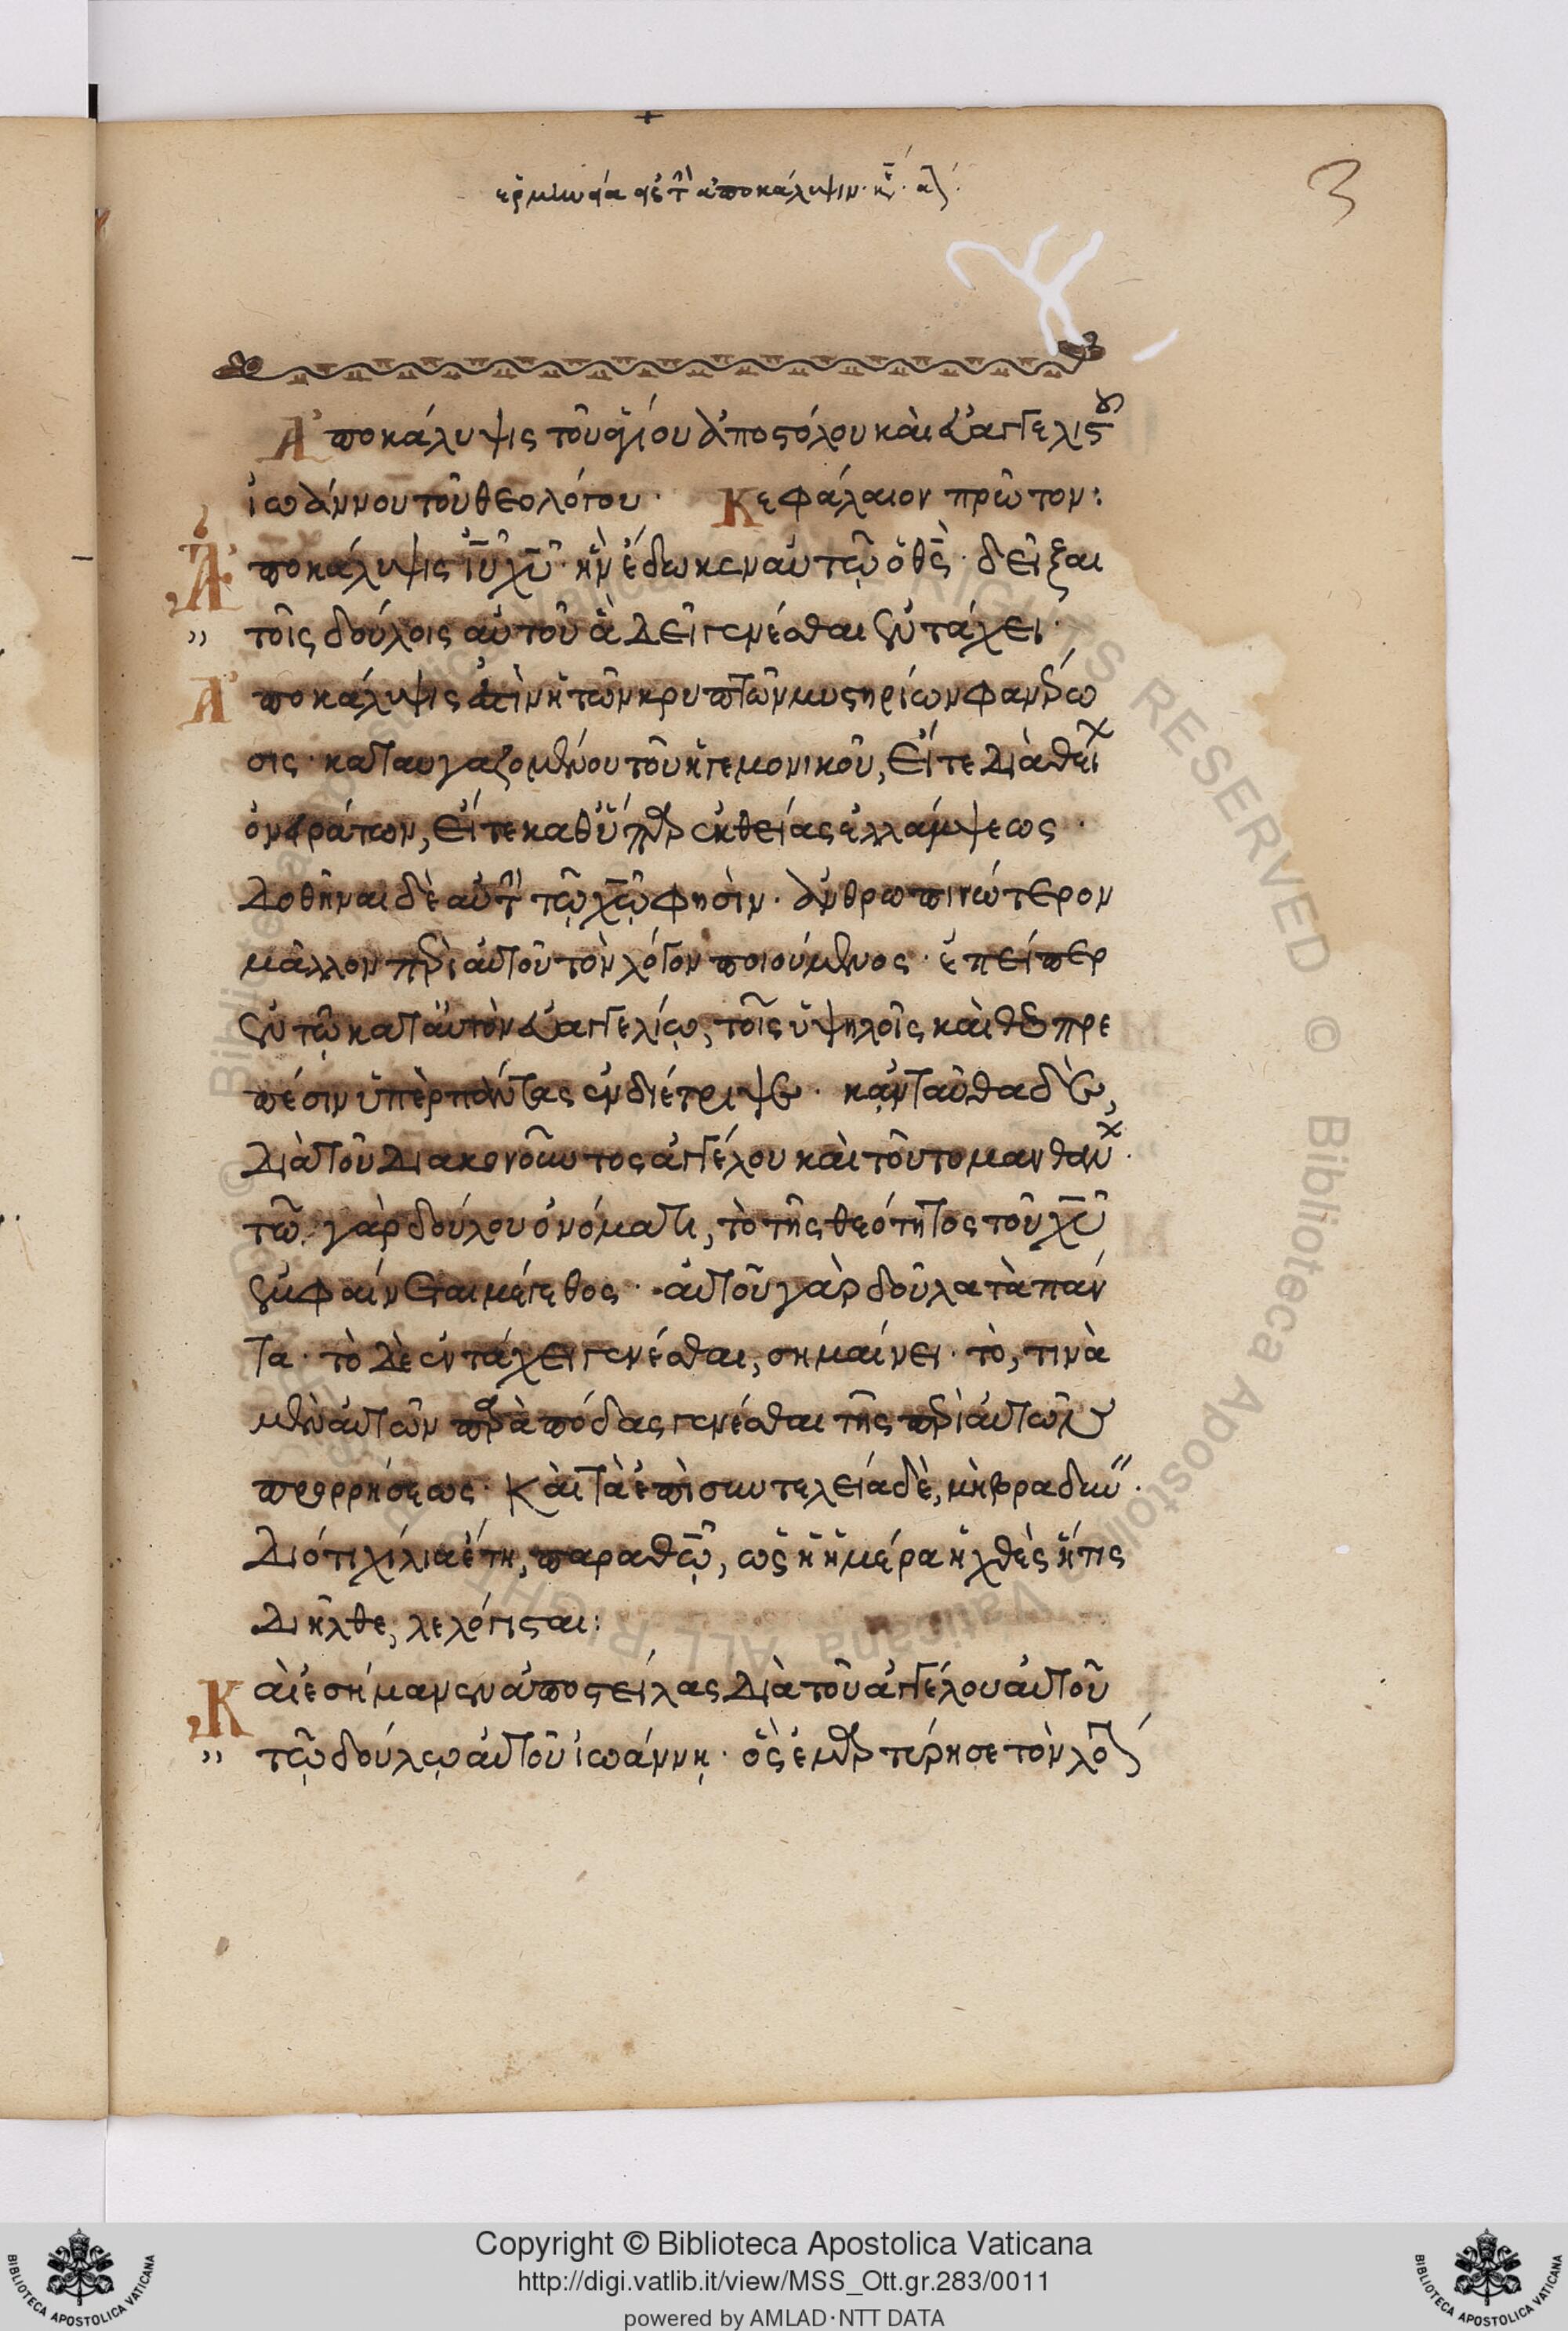 ἑρμηνεία εἰς τ ἀποκάλυψιν
3
Ἀποκάλυψις τοῦ ἁγίου ἀποστόλου καὶ εὐαγγελιστ
ἰωάννου τοῦ θεολόγου· Κεφάλαιον πρῶτον:
Ἀποκάλυψις ἰυ χυ· ἣν ἔδωκεν αὐτῷ ὁ θς· δεῖξαι
τοῖς δούλοις αὐτοῦ ἃ δεῖ γενέσθαι ἐν τάχει·
Ἀποκάλυψις ἐστὶν ἡ τῶν κρυπτῶν μυστηρίων φανέρω
σις· καταυγαζομένου τοῦ ἡγεμονικοῦ, εἴτε διὰ θεί
ὀνειράτων, εἴτε καθ ὕπαρ ἐκ θείας ἐλλάμψεως·
δοθῆναι δὲ αὐτ τῷ χῷ φησὶν· ἀνθρωπινώτερον
μᾶλλον περὶ αὐτοῦ τὸν λόγον ποιούμενος· ἐπείπερ
ἐν τῷ κατ αὐτὸν εὐαγγελίῳ, τοῖς ὑψηλοῖς καὶ θεοπρε
πέσιν ὑπὲρ πάντας ἐνδιέτριψε· κᾀνταῦθα δὲ,
διὰ τοῦ διακονοῦντος ἀγγέλου καὶ τοῦτο μανθάν·
τῷ γὰρ δούλου ὀνόματι, τὸ τῆς θεότητος τοῦ χυ
ἐμφαίνεται μέγεθος· αὐτοῦ γὰρ δοῦλα τὰ πάν
τα· τὸ δὲ ἐν τάχει γενέσθαι, σημαίνει· τὸ, τινὰ
μὲν αὐτῶν παρὰ πόδας γενέσθαι τῆς περὶ αὐτῶν
προρρήσεως· καὶ τὰ ἐπὶ συντελεία δὲ, μὴ βραδύν·
διότι χίλια ἔτη, παρὰ θῷ, ὡς ἡ ἡμέρα ἡ χθὲς ἥτις
διῆλθε, λελόγισται:
Καὶ ἐσήμανεν ἀποστείλας διὰ τοῦ ἀγγέλου αὐτοῦ
τῷ δούλῳ αὐτοῦ ἰωάννῃ· ὃς ἐμαρτύρησε τὸν λό
Copyright © Biblioteca Apostolica Vaticana
http://digi.vatlib.it/view/MSS_Ott.gr.283/0011
powered by AMLAD·NTT DATA